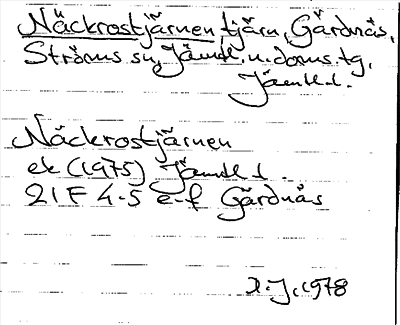 Näckrostjärnen, tjärn, Gärdnäs,
Ströms sn, Jämtl. n. doms. tg,
Jämtl. l.
Näckrostjärnen
ek (1975) Jämtl l.
21 F 4-5 e-f Gärdnäs
1978